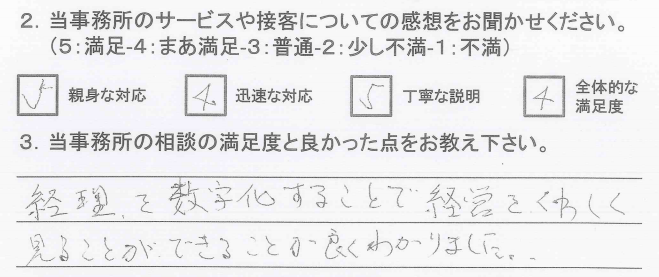 2. 当事務所のサービスや接客についての感想をお聞かせください。
(5:満足-4:まあ満足-3:普通-2:少し不満-1:不満)
5 親身な対応 4 迅速な対応 5 丁寧な説明 4 全体的な満足度
3. 当事務所の相談の満足度と良かった点をお教え下さい。
経理を数字化することで経営をくわしく
見ることができることが良くわかりました。